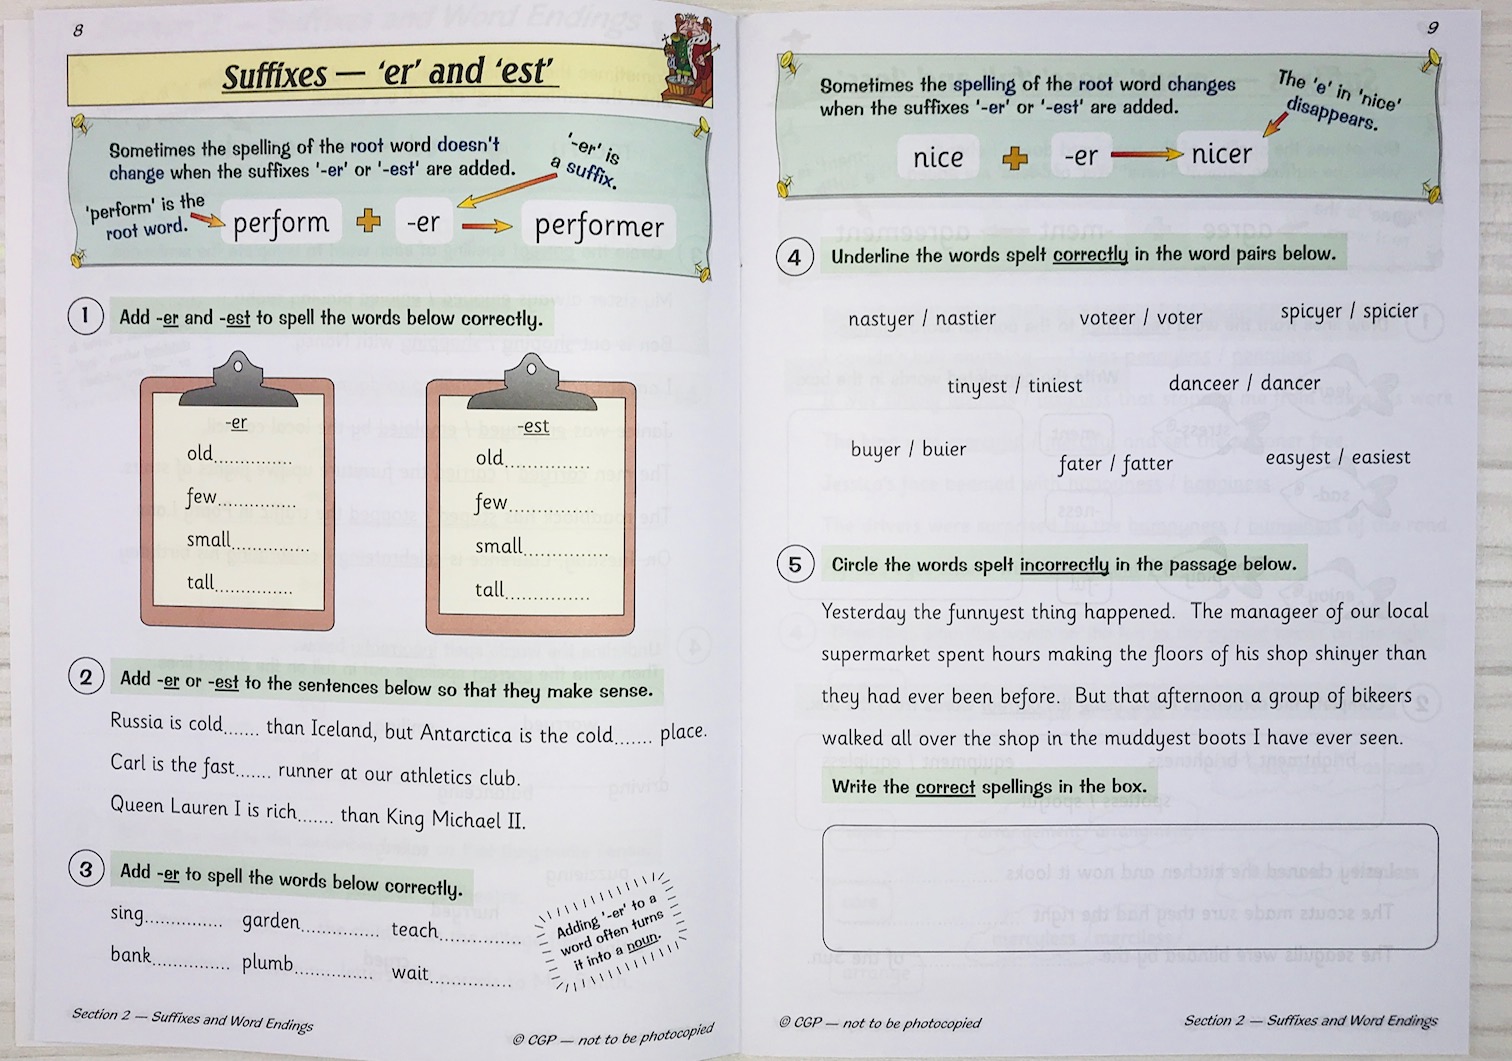 8
Suffixes — 'er' and 'est'
Sometimes the spelling of the root word doesn't
change when the suffixes '-er' or '-est' are added.
'-er' is
a suffix.
'perform' is the
root word.
perform + -er performer
1 Add -er and -est to spell the words below correctly.
-er
old..............
few..............
small..............
tall..............
-est
old..............
few..............
small..............
tall..............
2 Add -er or -est to the sentences below so that they make sense.
Russia is cold....... than Iceland, but Antarctica is the cold....... place.
Carl is the fast....... runner at our athletics club.
Queen Lauren I is rich....... than King Michael II.
3 Add -er to spell the words below correctly.
sing.............. garden.............. teach..............
bank.............. plumb.............. wait..............
Adding '-er' to a
word often turns
it into a noun.
Section 2 — Suffixes and Word Endings
© CGP — not to be photocopied
9
Sometimes the spelling of the root word changes
when the suffixes '-er' or '-est' are added.
The 'e' in 'nice'
disappears.
nice + -er nicer
4 Underline the words spelt correctly in the word pairs below.
nastyer / nastier voteer / voter spicyer / spicier
tinyest / tiniest danceer / dancer
buyer / buier fater / fatter easyest / easiest
5 Circle the words spelt incorrectly in the passage below.
Yesterday the funnyest thing happened. The manageer of our local
supermarket spent hours making the floors of his shop shinyer than
they had ever been before. But that afternoon a group of bikeers
walked all over the shop in the muddyest boots I have ever seen.
Write the correct spellings in the box.
© CGP — not to be photocopied
Section 2 — Suffixes and Word Endings